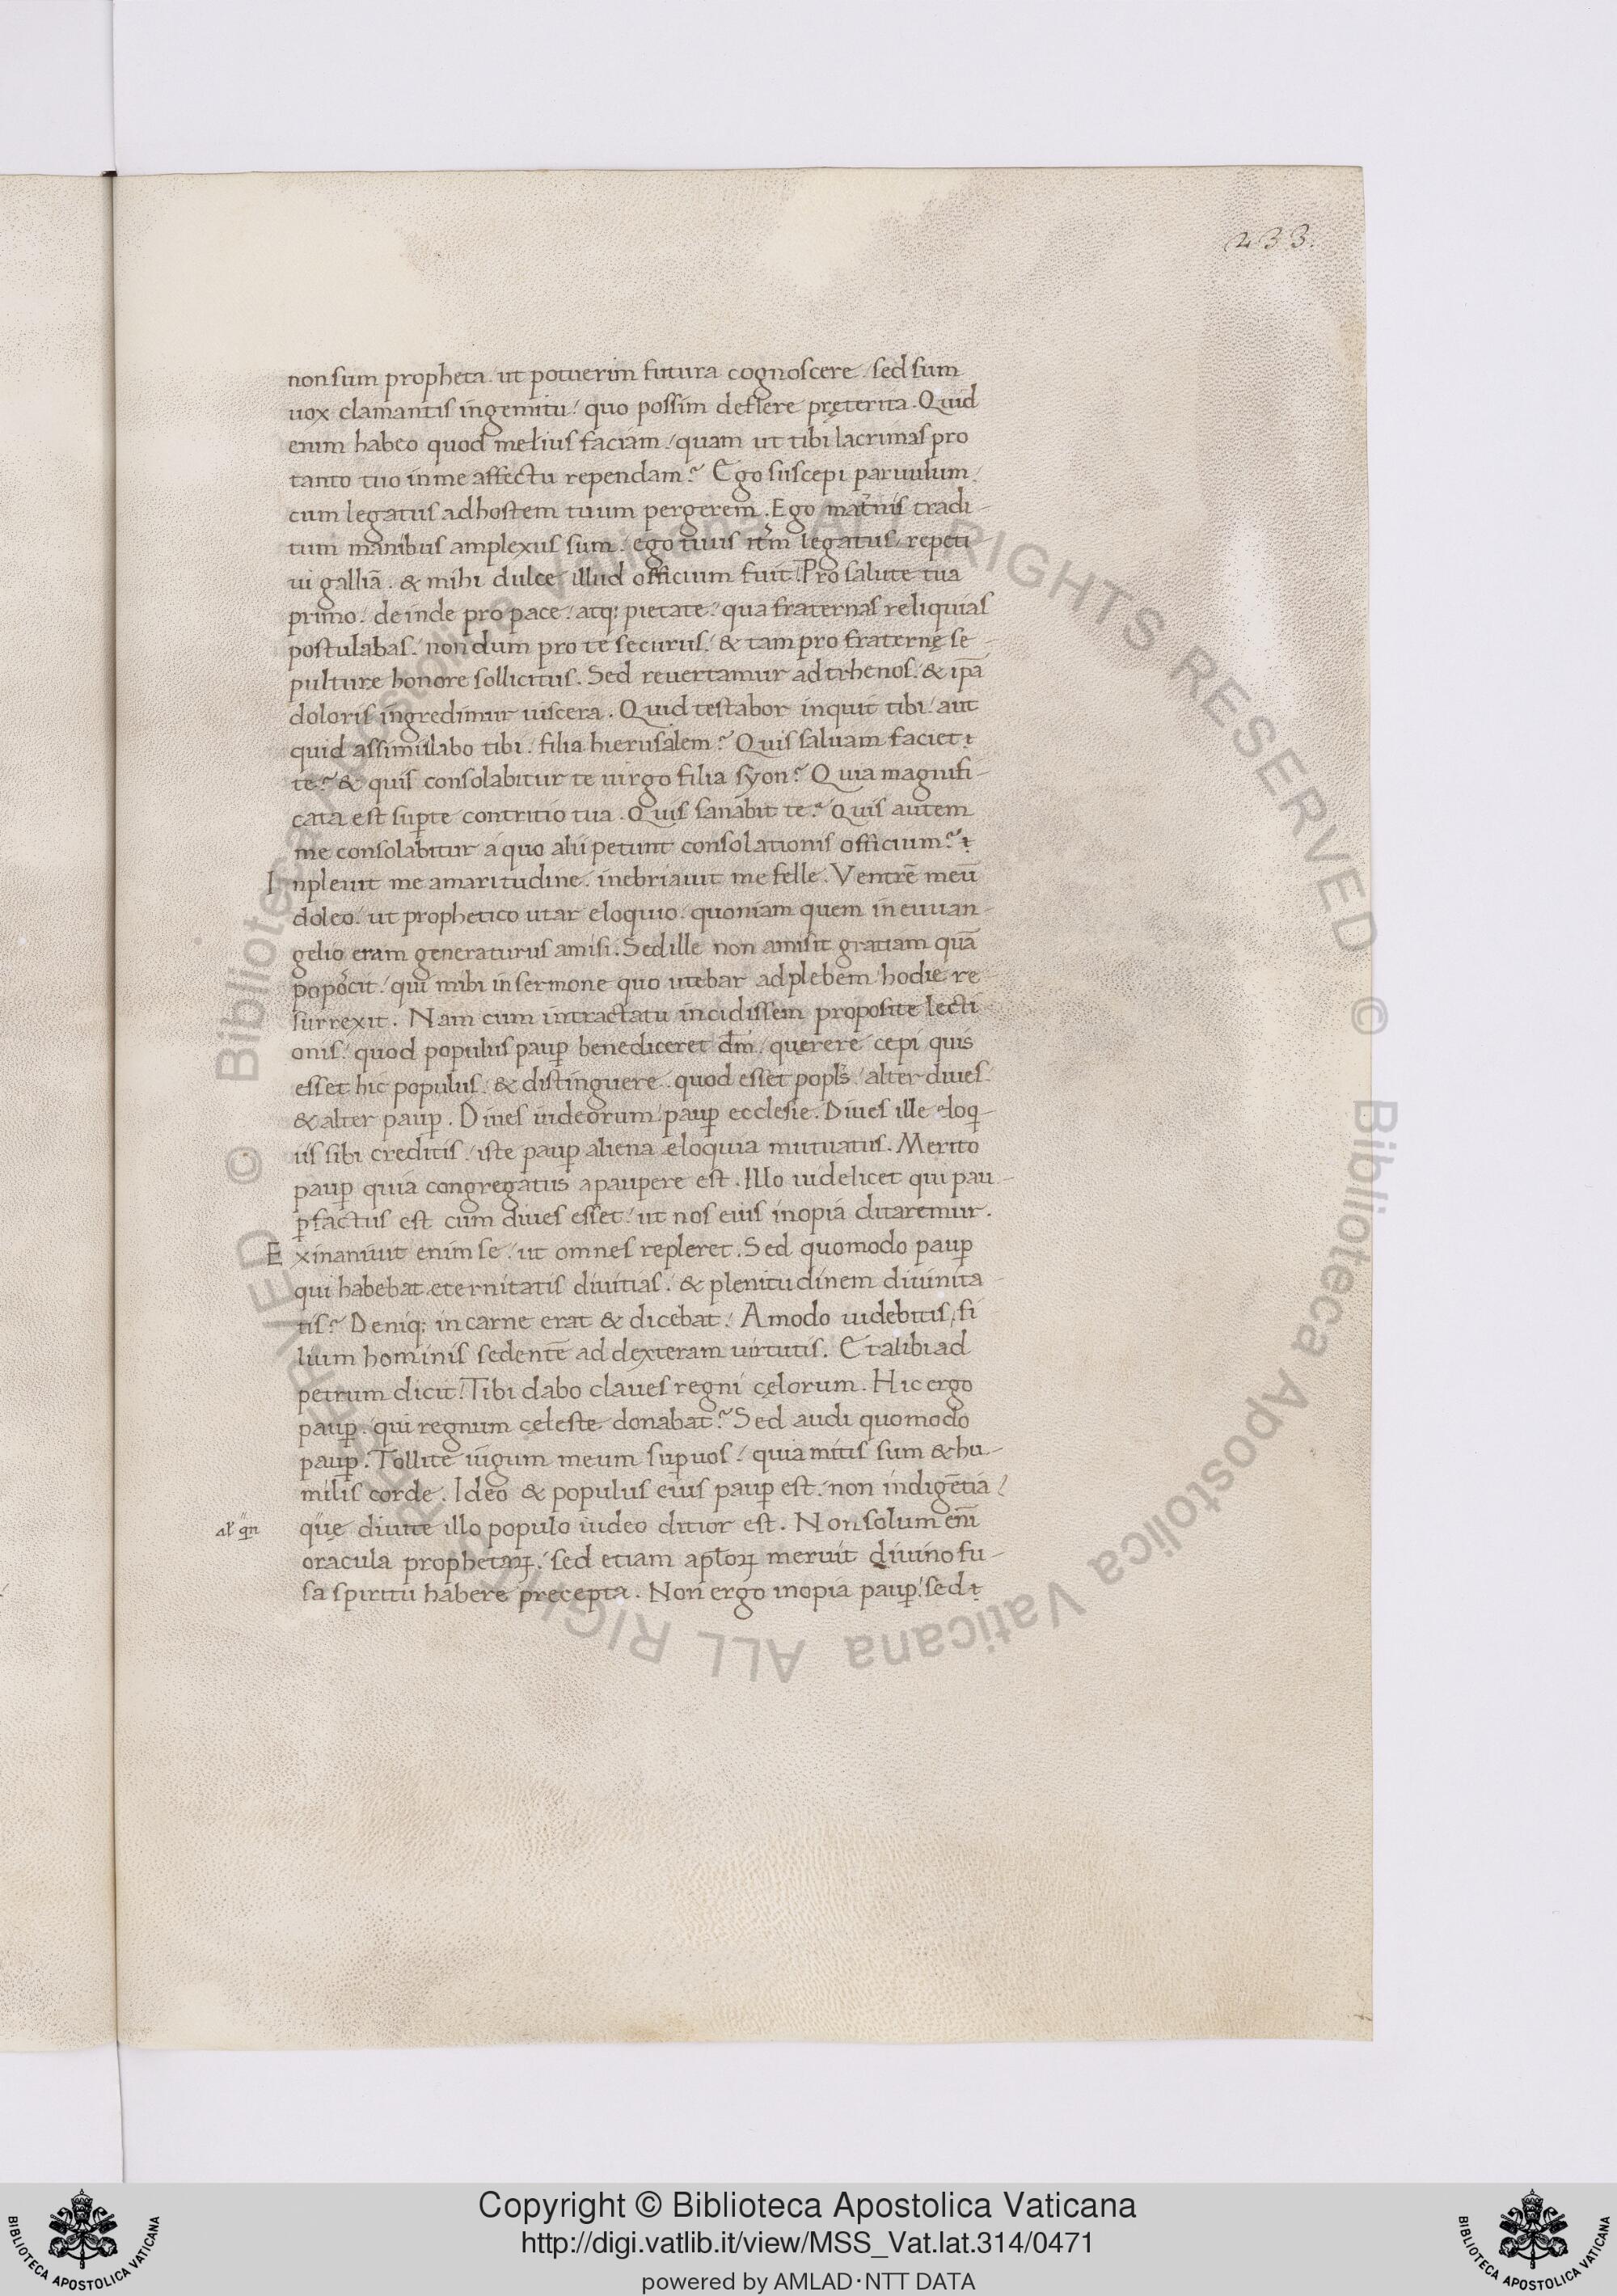 233.
non sum propheta. ut potuerim futura cognoscere. sed sum
uox clamantis in gemitu. quo possim deflere pręterita. Quid
enim habeo quod melius faciam. quam ut tibi lacrimas pro
tanto tuo in me affectu rependam? Ego suscepi paruulum.
cum legatus ad hostem tuum pergerem. Ego mat̃nis tradi-
tum manibus amplexus sum. ego tuus it̃m legatus. repeti
ui galliā. & mihi dulce illud officium fuit. Pro salute tua
primo. deinde pro pace. atq; pietate. qua fraternas reliquias
postulabas. nondum pro te securus. & tam pro fraternę se-
pulture honore sollicitus. Sed reuertamur ad trhenos. & ip̄a
doloris ingredimur uiscera. Quid testabor inquit tibi. aut
quid assimilabo tibi. filia hierusalem? Quis saluam faciet
te? & quis consolabitur te uirgo filia syon? Quia magnifi-
cata est sup̱te contritio tua. Quis sanabit te? Quis autem
me consolabitur a quo alii petunt consolationis officium?
Inpleuit me amaritudine. inebriauit me felle. Ventrē meū
doleo. ut prophetico utar eloquio. quoniam quem in euuan-
gelio eram generaturus amisi. Sed ille non amisit gratiam quā
poposcit. qui mihi in sermone quo utebar ad plebem hodie re
surrexit. Nam cum in tractatu incidissem proposite lecti
onis. quod populus paup̱ benediceret dm̄. querere cepi quis
esset hic populus. & distinguere. quod esset popl̄s. alter diues.
& alter paup̱. Diues iudeorum. paup̱ ecclesie. Diues ille eloq-
iis sibi creditis. iste paup̱ aliena eloquia mutuatus. Merito
paup̱ quia congregatus a paupere est. Illo uidelicet qui pau-
p̱ factus est cum diues esset. ut nos eius inopia ditaremur.
Exinaniuit enim se. ut omnes repleret. Sed quomodo paup̱
qui habebat eternitatis diuitias. & plenitudinem diuinita-
tis? Deniq; in carne erat & dicebat. Amodo uidebitis fi
lium hominis sedentē ad dexteram uirtutis. Et alibi ad
petrum dicit. Tibi dabo claues regni cęlorum. Hic ergo
paup̱. qui regnum cęleste donabat? Sed audi quomodo
paup̱. Tollite iugum meum sup̱ uos. quia mitis sum & hu-
milis corde. Ideo & populus eius paup̱ est. non indigētia.
al' qn
quę diuite illo populo iudeo ditior est. Non solum enī
oracula prophetaꝝ. sed etiam apl̄oꝝ meruit diuino fu-
sa spiritu habere precepta. Non ergo inopia paup̱. sed
© Biblioteca Apostolica Vaticana ALL RIGHTS RESERVED © Biblioteca Apostolica Vaticana ALL RIGHTS RESERVED
Copyright © Biblioteca Apostolica Vaticana
http://digi.vatlib.it/view/MSS_Vat.lat.314/0471
powered by AMLAD·NTT DATA
BIBLIOTECA APOSTOLICA VATICANA
BIBLIOTECA APOSTOLICA VATICANA